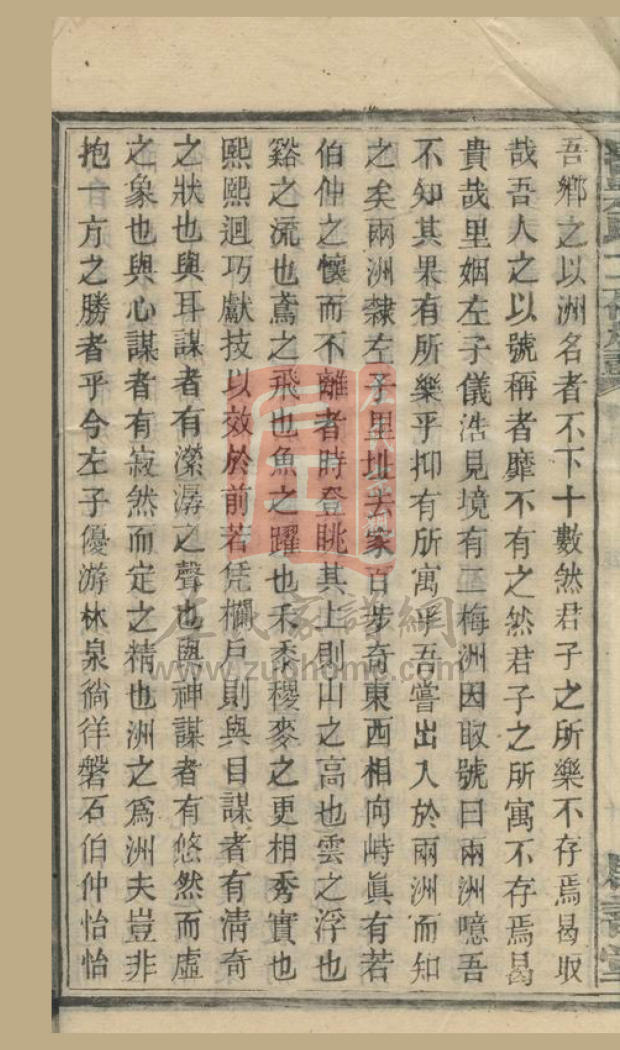 吾鄉之以洲名者不下十數然君子之所樂不存焉曷取
哉吾人之以號稱者靡不有之然君子之所寓不存焉曷
貴哉里姻左子儀浩見境有二梅洲因取號曰兩洲噫吾
不知其果有所樂乎抑有所寓乎吾嘗出入於兩洲而知
之矣兩洲隸左子里址去家百步奇東西相向峙眞有若
伯仲之懷而不離者時登眺其上則山之高也雲之浮也
谿之流也鳶之飛也魚之躍也禾黍稷麥之更相秀實也
熙熙迴巧獻技以效於前若凭欄戶則與目謀者有淸奇
之狀也與耳謀者有瀠潺之聲也與神謀者有悠然而虛
之象也與心謀者有寂然而定之精也洲之爲洲夫豈非
抱一方之勝者乎今左子優游林泉徜徉磐石伯仲怡怡
左氏家譜網
www.zuohome.com